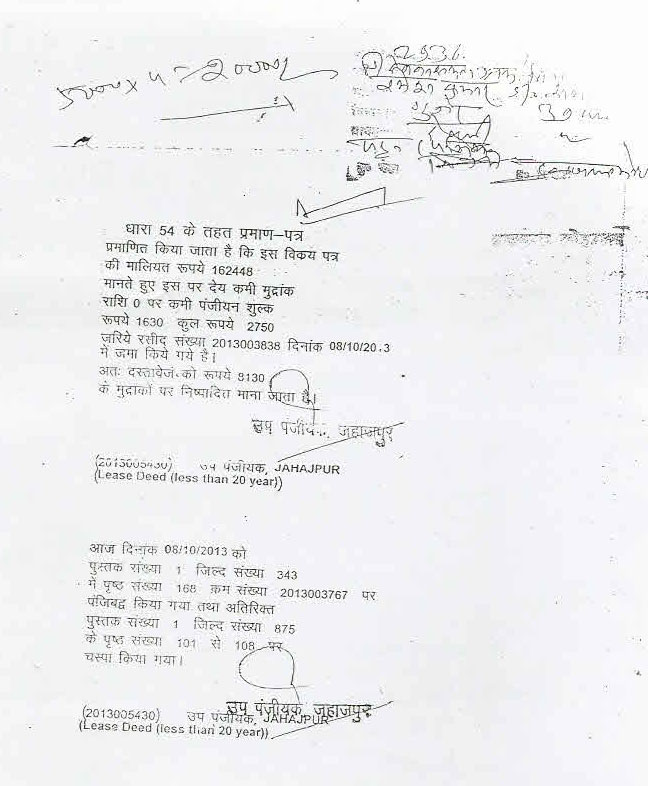 5000 x 4 = 20000/-
2536
धारा 54 के तहत प्रमाण–पत्र
प्रमाणित किया जाता है कि इस विकय पत्र
की मालियत रूपये 162448
मानते हुए इस पर देय कमी मुद्रांक
राशि 0 पर कमी पंजीयन शुल्क
रूपये 1630 कुल रूपये 2750
जरिये रसीद संख्या 2013003838 दिनांक 08/10/2013
में जमा किये गये है।
अतः दस्तावेज को रूपये 8130
के मुद्राकों पर निष्पादित माना जाता है।
उप पंजीयक, जहाजपुर
(2013005430) उप पंजीयक, JAHAJPUR
(Lease Deed (less than 20 year))
आज दिनांक 08/10/2013 को
पुस्तक संख्या 1 जिल्द संख्या 343
में पृष्ठ संख्या 168 कम संख्या 2013003767 पर
पंजिबद्व किया गया तथा अतिरिक्त
पुस्तक संख्या 1 जिल्द संख्या 875
के पृष्ठ संख्या 101 से 108 पर
चस्पा किया गया।
उप पंजीयक, जहाजपुर
(2013005430) उप पंजीयक, JAHAJPUR
(Lease Deed (less than 20 year))